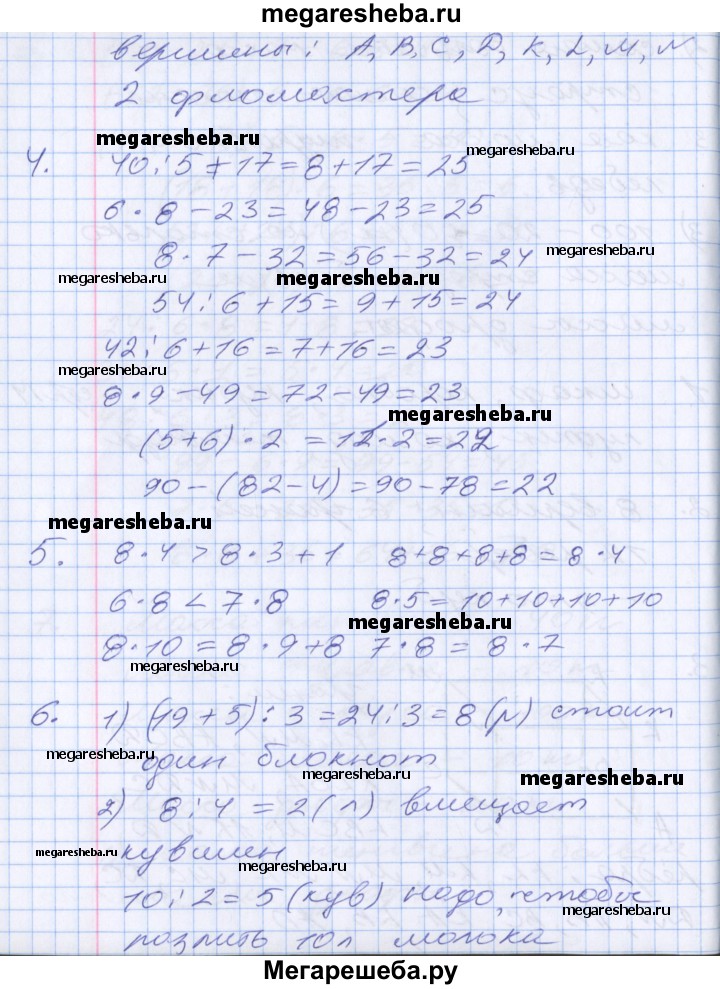 megaresheba.ru
вершины: A, B, C, D, K, L, M, N
2 фломастера
megaresheba.ru
megaresheba.ru
4. 40:5+17=8+17=25
6·8-23=48-23=25
8·7-32=56-32=24
megaresheba.ru
megaresheba.ru
megaresheba.ru
54:6+15=9+15=24
42:6+16=7+16=23
megaresheba.ru
8·9-49=72-49=23
megaresheba.ru
(5+6)·2=11·2=22
90-(82-4)=90-78=22
megaresheba.ru
5. 8·4>8·3+1 8+8+8+8=8·4
6·8<7·8 8·5=10+10+10+10
megaresheba.ru
8·10=8·9+8 7·8=8·7
megaresheba.ru
6. 1) (19+5):3=24:3=8(р) стоит
megaresheba.ru
один блокнот
megaresheba.ru
megaresheba.ru
2) 8:4=2(л) вмещает
кувшин
megaresheba.ru
megaresheba.ru
10:2=5(кув) надо, чтобы
megaresheba.ru
розлить 10л молока
Мегарешеба.ру